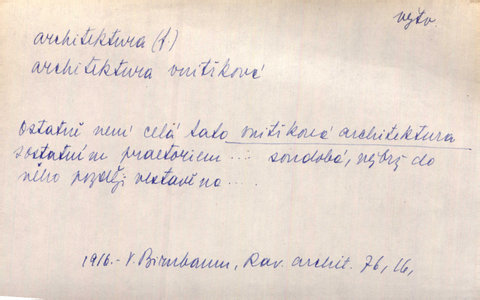 výtv.
architektura (f)
architektura vnitřková
Ostatně není celá tato vnitřková architektura
s ostatním praetoriem ... soudobá, nýbrž do
něho později vestavěna ...
1916. - V. Birnbaum, Rav. archit. 76, 16,